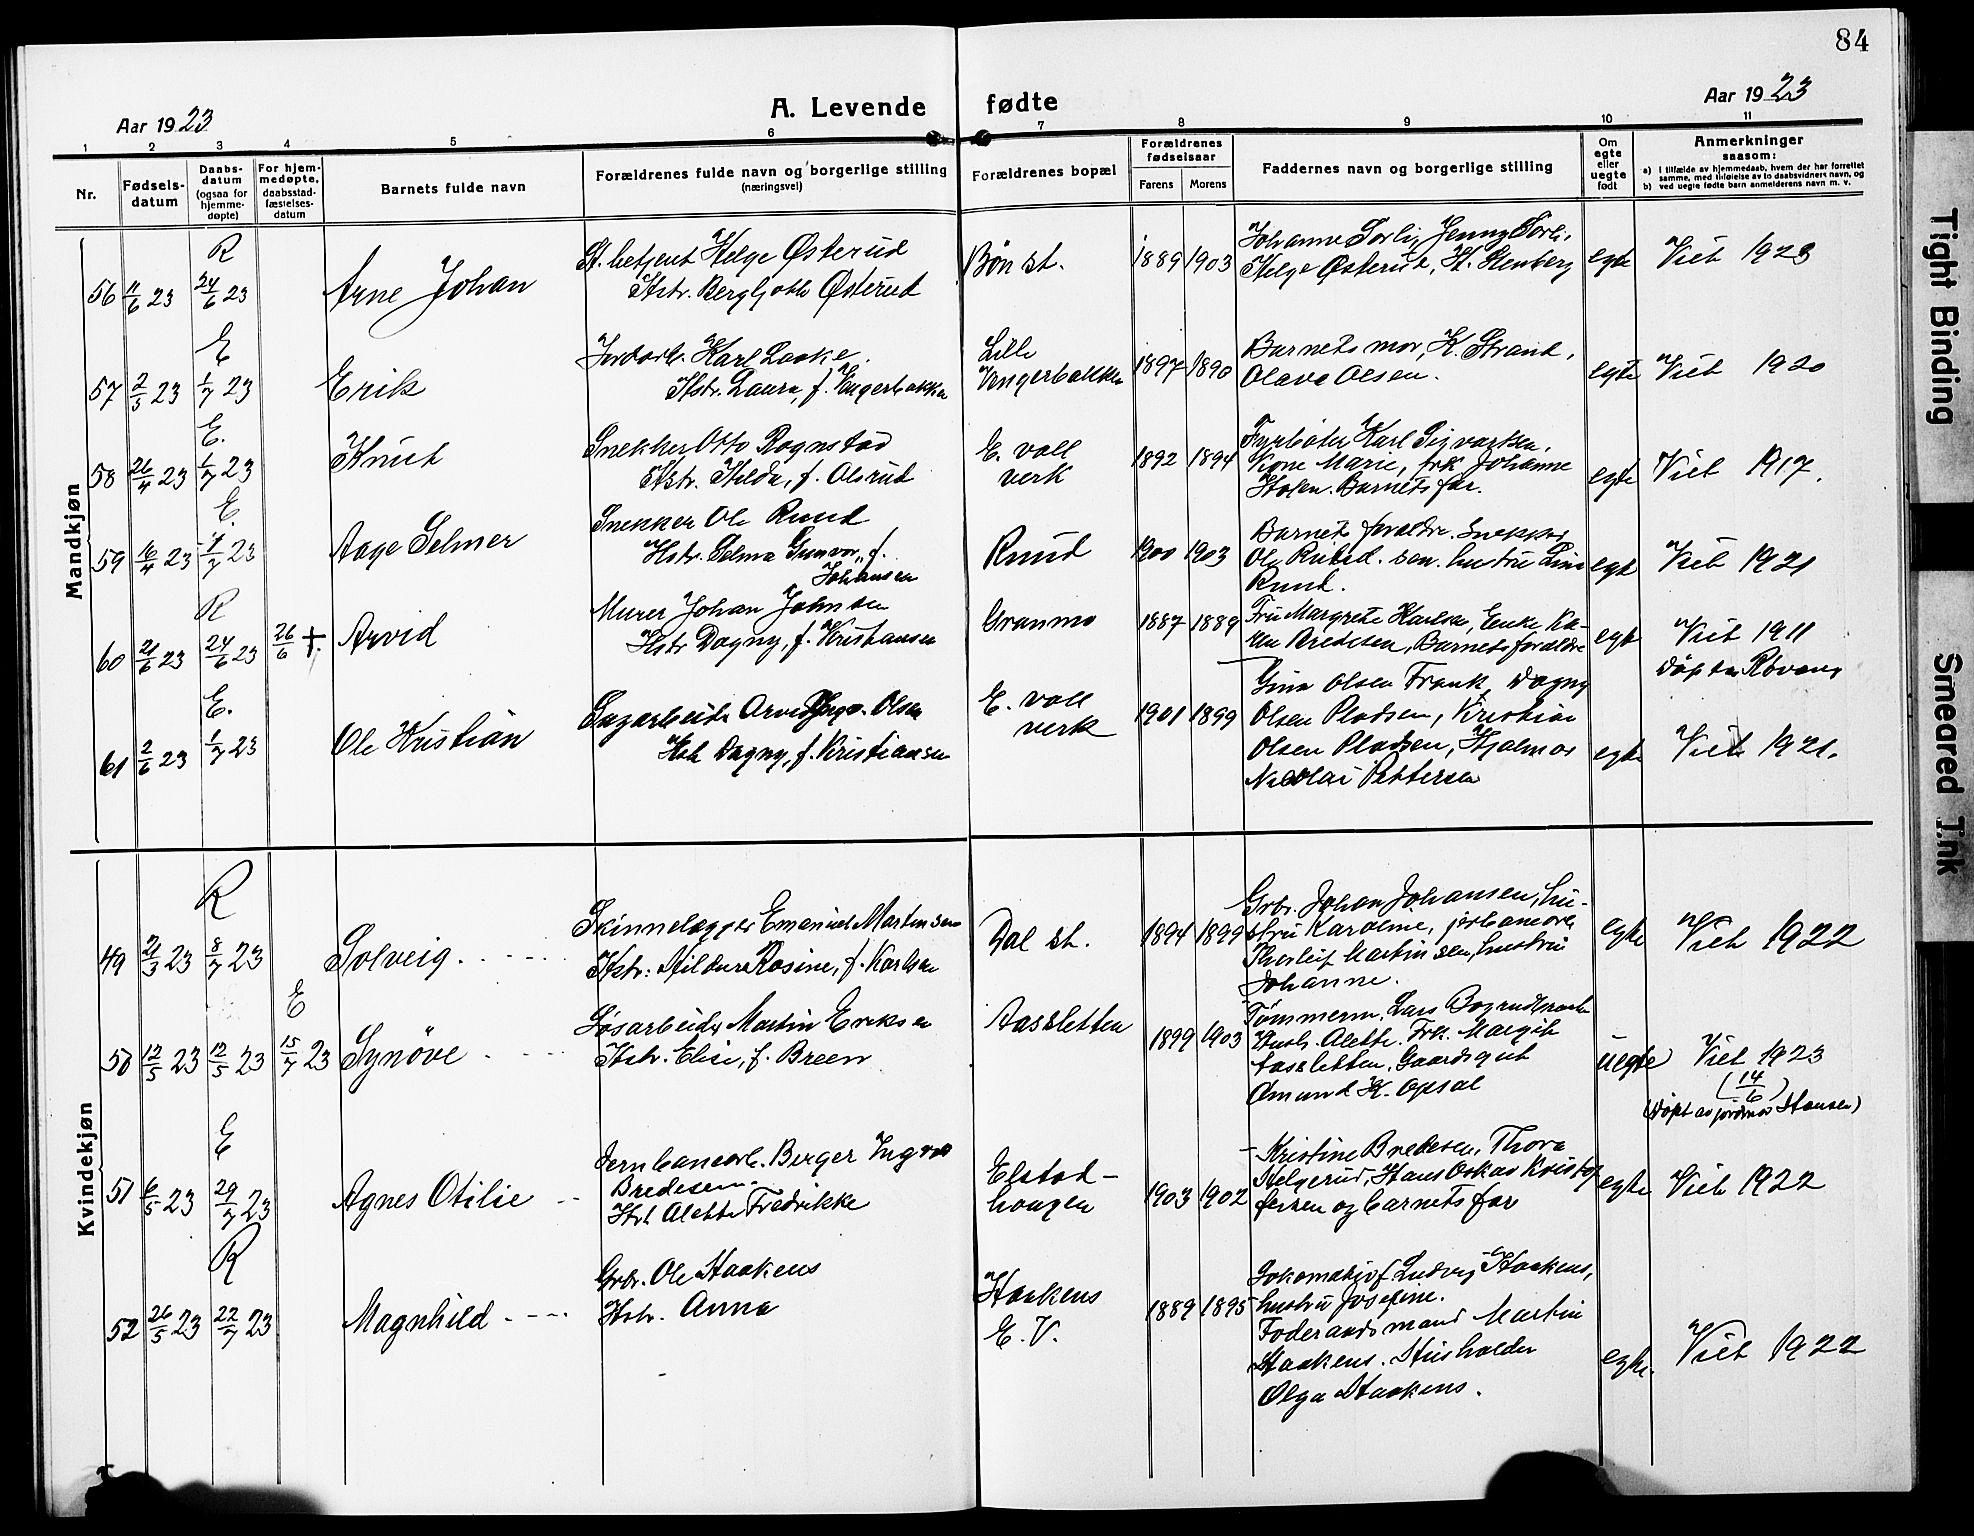 84
Aar 1923
A. Levende fødte
Aar 1923
1 2 3 4 5 6 7 8 9 10 11
Nr.
Fødsels-
datum
Daabs-
datum
(ogsaa for
hjemme-
døpte)
For hjem-
medøpte,
daabsstad-
fæstelses-
datum
Barnets fulde navn
Forældrenes fulde navn og borgerlige stilling
(næringsvei)
Forældrenes bopæl
Forældrenes
fødselsaar
Farens
Morens
Faddernes navn og borgerlige stilling
Om
egte
eller
uegte
født
Anmerkninger
saasom:
a) I tilfælde av hjemmedaab, hvem der har forrettet
samme, med tilføielse av to daabsvidners navn, og
b) ved uegte fødte barn anmelderens navn m. v.
Mandkjøn
R
56 11/6 23 24/6 23 Arne Johan
St. betjent Helge Østerud
Hstr. Bergljoth Østerud
Bøn st.
1889 1903
Johanne Sorli, Jenny Sorli,
Helge Østerud, H. Stenberg
egte Viet 1923
E
57 2/5 23 1/7 23 Erik
Jordarb. Karl Laake.
Hstr. Laura, f. Engerbakken
Lille
Engerbakken
1897 1890
Barnets mor, K. Strand,
Olava Olsen.
egte Viet 1920
E.
58 26/4 23 1/7 23 Knut
Snekker Otto Rognstad
Hstr. Hilda, f. Olsrud
E. voll
verk
1892 1894
Fyrbøter Karl Sigvartsen,
Kone Marie, frk. Johanne
Holen. Barnets far.
egte Viet 1917.
E.
59 16/4 23 1/7 23 Aage Selmer
Snekker Ole Ruud
Hstr. Selma Gunvor, f.
Johansen
Ruud
1900 1903
Barnets foraldre. Snekker
Ole Ruud. sen. hustru Lina
Ruud.
egte Viet 1921
R
60 21/6 23 24/6 23 26/6 †. Arvid
Murer Johan Johnsen
Hstr Dagny, f. Kristiansen
Granmo
1887 1889
Fru Margrete Karlsen, Enke Ka-
ren Bredesen, Barnets foraldre
egte Viet 1911
Døpt av
E.
61 2/6 23 1/7 23 Ole Kristian
Sagarbeider Arvid Olsen
Hstr Dagny, f. Kristiansen
E. voll
verk
1901 1899
Gina Olsen Frank, Dagny
Olsen Pladsen, Kristian
Olsen Pladsen, Hjalmar
Nicolai Pettersen
egte Viet 1921.
Kvindekjøn
R
49 21/3 23 8/7 23 Solveig
Skinnelægger Emanuel Martinsen
Hstr: Hildur Rosine, f. Karlsen
Dal st.
1894 1899
Grbr. Johan Johansen, hu-
stru Karoline, jerbanearb.
Thorleif Martinsen, hustru
Johanne.
egte Viet 1922
E
50 12/5 23 12/5 23 15/7 23 Synöve
Løsarbeider Martin Eriksen
Hstr. Elise, f. Breen
Aassletten
1899 1903
Tömmerm. Lars
Hustr. Alette. Frk. Margit
Aassletten, Gaardsgut
Omund K. Opsal
uegte Viet 1923
(14/6)
(Døpt av jordmor Hansen)
E
51 6/5 23 29/7 23 Agnes Otilie
Jernbanearb. Berger Ingvar
Bredesen.
Hstr Alette Fredrikke
Elstad-
haugen
1903 1902
Kristine Bredesen, Thora
Helgerud, Hans Oskar Kristof-
fersen og barnets far
egte Viet 1922
R
52 26/5 23 22/7 23 Magnhild
Grbr. Ole Haakens
Hstr. Anna
Haakens
E. V.
1889 1895
Lokomotivf. Ludvig Haakens,
hustru Josefine.
Foderaadsmand Martin
Haakens. Husholder
Olga Haakens.
egte. Viet 1922
Tight Binding
Smeared Ink